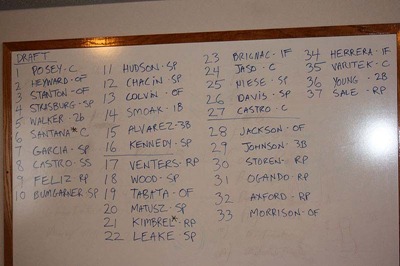 DRAFT
1 POSEY - C
2 HEYWARD - OF
3 STANTON - OF
4 STRASBURG - SP
5 WALKER - 2b
6 SANTANA* C
7 GARCIA - SP
8 CASTRO - SS
9 FELIZ RP
10 BUMGARNER SP
11 HUDSON - SP
12 CHACIN - SP
13 COLVIN - OF
14 SMOAK - 1B
15 ALVAREZ - 3B
16 KENNEDY - SP
17 VENTERS - RP
18 WOOD - SP
19 TABATA - OF
20 MATUSZ - SP
21 KIMBREL* - RP
22 LEAKE SP
23 BRIGNAC - IF
24 JASO - C
25 NIESE - SP
26 DAVIS - SP
27 CASTRO - C
28 JACKSON - OF
29 JOHNSON - 3B
30 STOREN - RP
31 OGANDO - RP
32 AXFORD - RP
33 MORRISON - OF
34 HERRERA - IF
35 VARITEK - C
36 YOUNG - 2B
37 SALE - RP